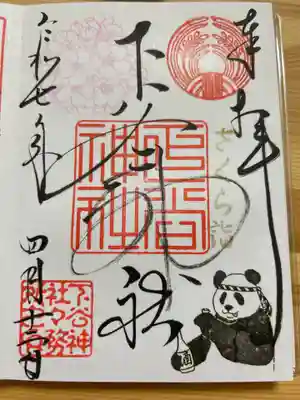 奉拝
さくら詣
下谷神社
下谷神社
令和七年
四月十三日
下谷神社々務所之印